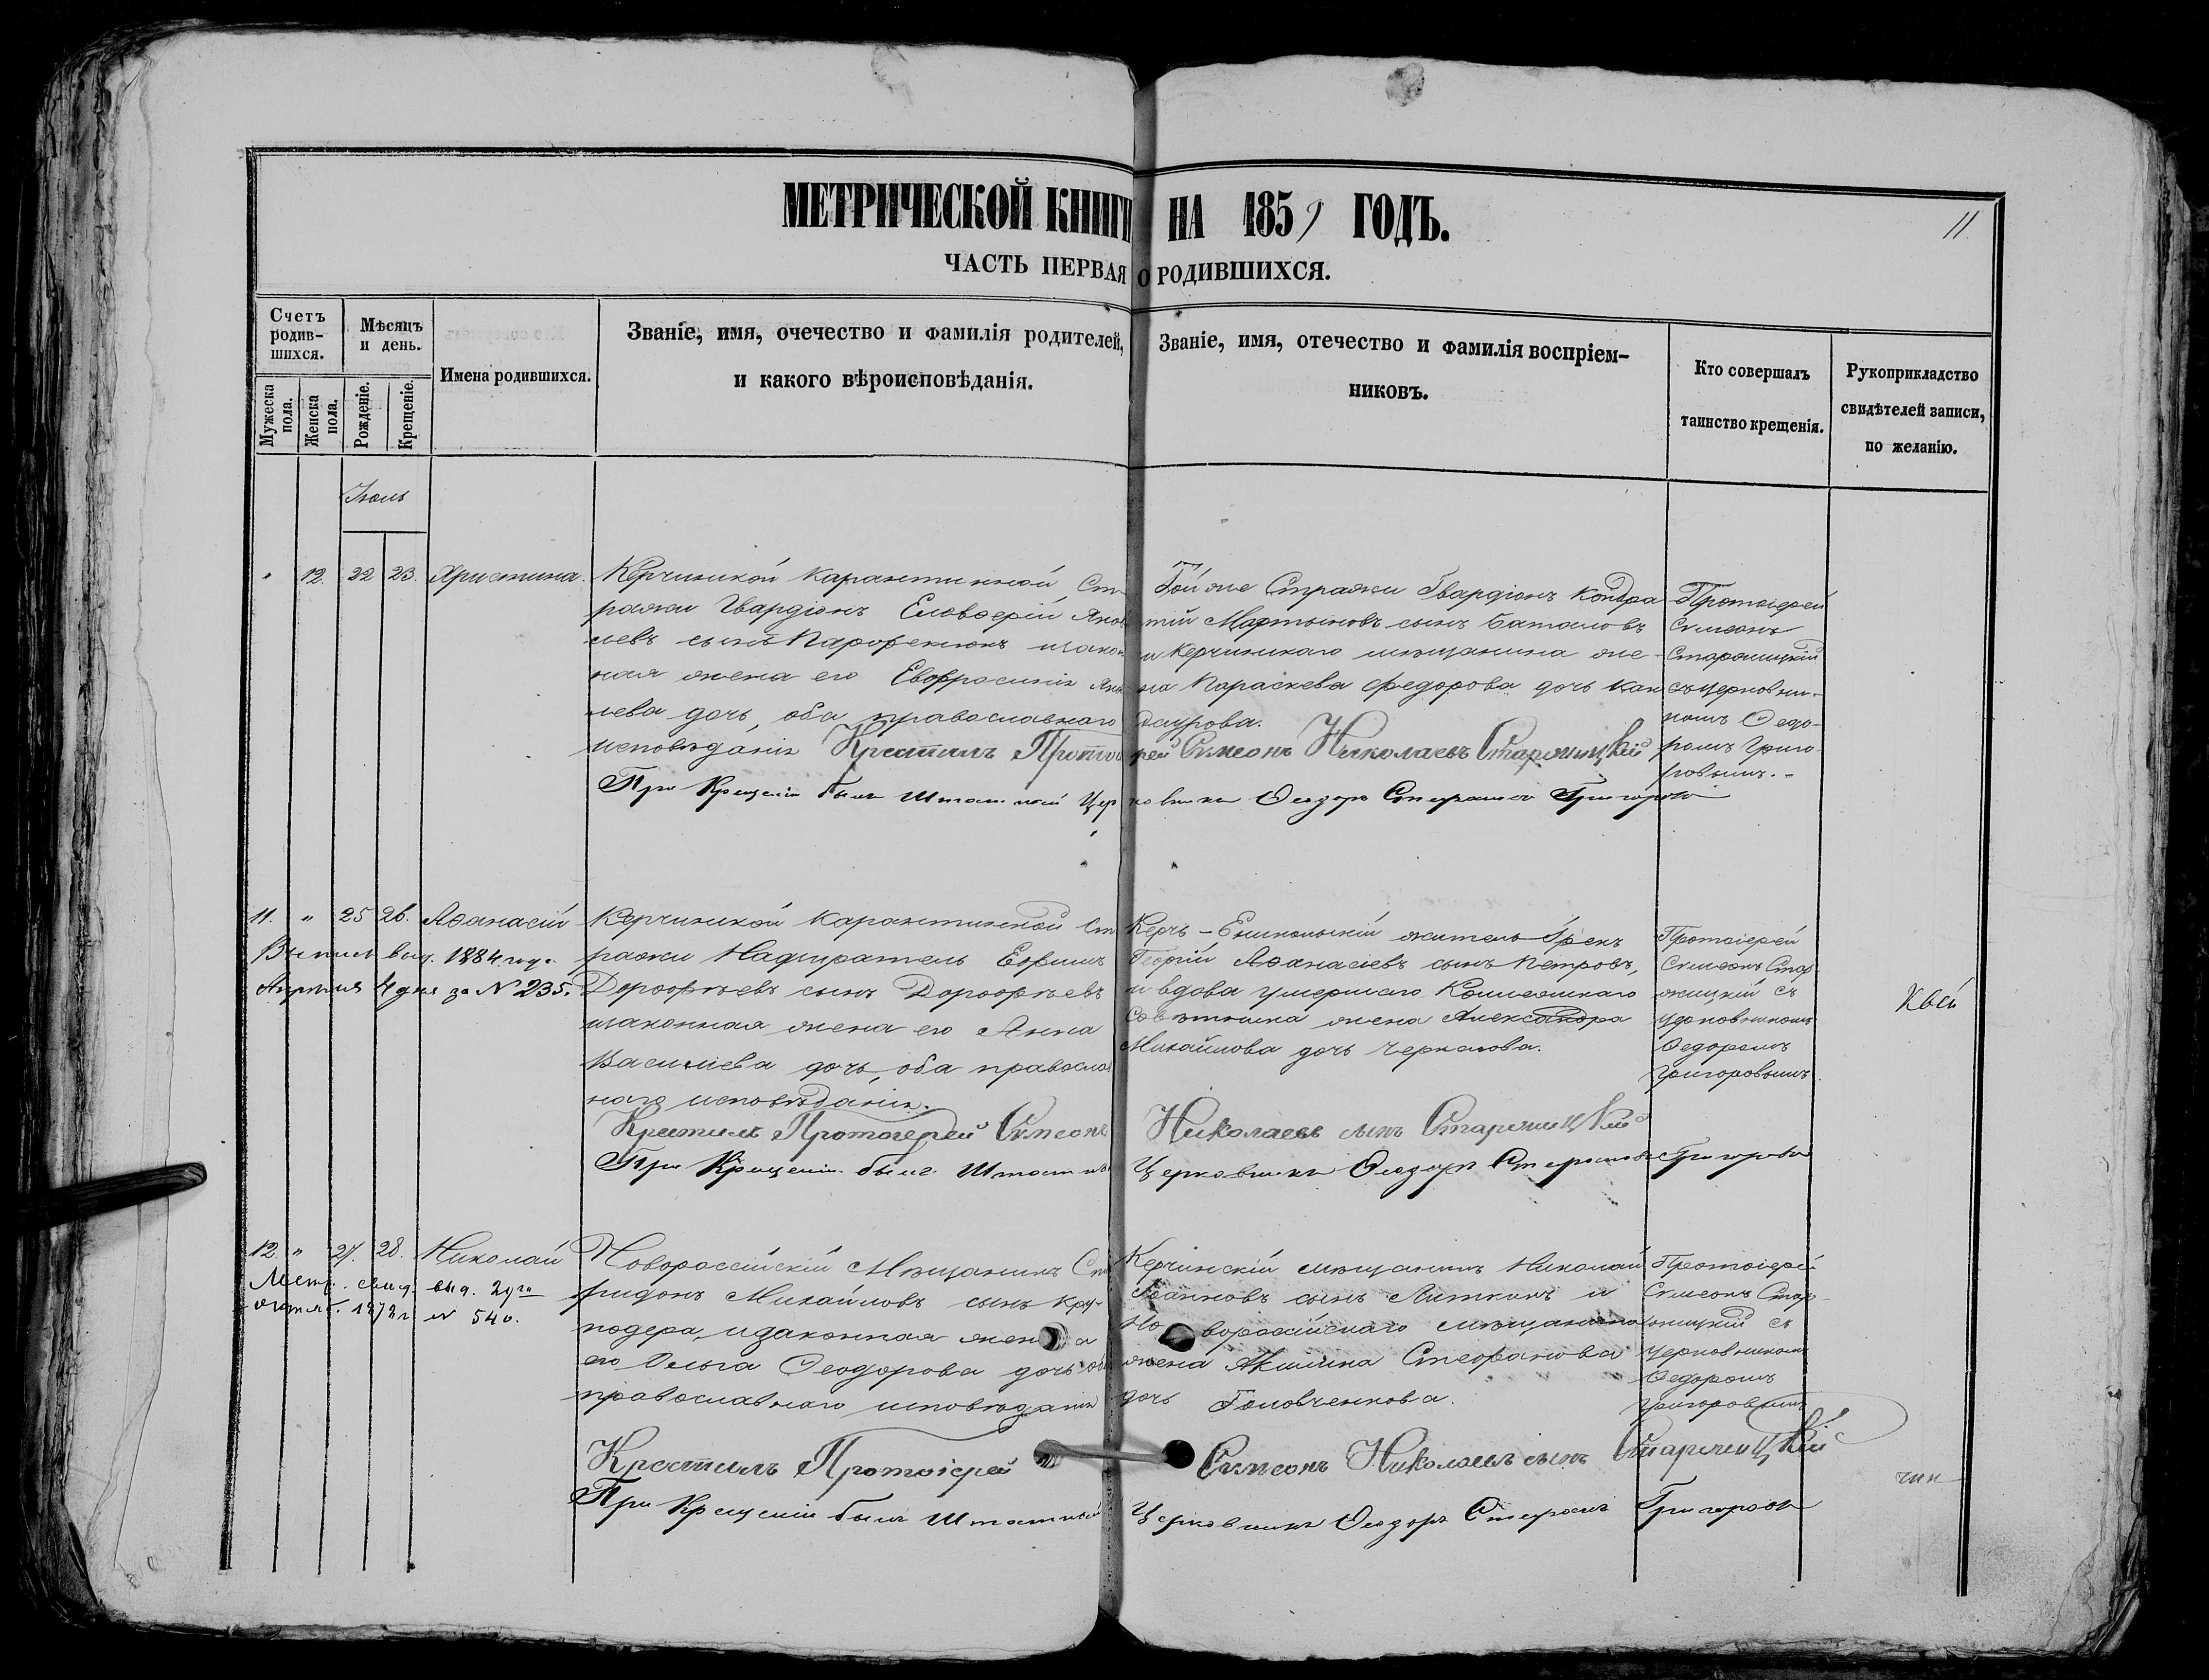 МЕТРИЧЕСКОЙ КНИГИ НА 1859 ГОДЪ.
11.
ЧАСТЬ ПЕРВАЯ О РОДИВШИХСЯ.
Счетъ родив-шихся.
Мужеска пола.
Женска пола.
Мѣсяцъ и день.
Рожденіе.
Крещеніе.
Имена родившихся.
Званіе, имя, очечество и фамилія родителей,
и какого вѣроисповѣданія.
Званіе, имя, отечество и фамилія воспріем-
никовъ.
Кто совершалъ
таинство крещенія.
Рукоприкладство
свидѣтелей записи,
по желанію.
" 12. 22 23. Христина.
Керчинской Карантинной Ст
ражи Гвардіонъ Елевѳерій Яков
левъ сынъ Парфенюкъ изакон
ная жена его Евфросинія Яко
лева дочь, оба православнаго
исповѣданія
Той же Стражи Гвардіонъ Кондра
тій Мартыновъ сынъ Баталовъ
и Керчинскаго мѣщанина же
на Параскева Федорова дочь Кан
даурова.
Протоіерей
Симеонъ
Старжицкій
съ церковни-
комъ Ѳедо-
ромъ Григо-
ровымъ.
Крестилъ Протоіерей Симеонъ Николаевъ Старжицкій
При Крещеніи былъ Штатный Церковникъ Ѳеодоръ Стефановъ Григоровъ
11. " 25 26. Аѳанасій
выд. 1884 года
Апрѣля 4 дня за № 235.
Керчинской Карантинной Ст
ражи Надзиратель Ефимъ
Дорофѣевъ сынъ Дорофѣевъ
изаконная жена его Анна
Васильева дочь, оба правосла
наго исповѣданія.
Керчь-Еникольскій житель Грекъ
Георгій Аѳанасіевъ сынъ Петровъ,
и вдова умершаго Коллежскаго
Совѣтника жена Александра
Михайлова дочь Черкасова.
Протоіерей
Симеонъ Стар-
жицкій съ
церковникомъ
Ѳедоромъ
Григоровымъ
Крестилъ Протоіерей Симеонъ Николаевъ сынъ Старжицкій
При Крещеніи былъ Штатный Церковникъ Ѳеодоръ Стефановъ Григоровъ
12. " 27. 28. Николай
Метр. свид. выд. 2го
1872 г. № 540.
Новороссійскій Мѣщанинъ Спи
ридонъ Михайловъ сынъ Кру-
подера, изаконная жена
его Ольга Ѳеодорова дочь оба
православнаго исповѣданія
Керчинскій мѣщанинъ Николай
Іоанновъ сынъ Литкинъ и
Новороссійскаго мѣщанина
жена Акилина Стефанова
дочь Головченкова.
Протоіерей
Симеонъ Стар-
жицкій съ
церковникомъ
Ѳедоромъ
Григоровымъ
Крестилъ Протоіерей Симеонъ Николаевъ сынъ Старжицкій
При Крещеніи былъ Штатный Церковникъ Ѳеодоръ Стефановъ Григоровъ